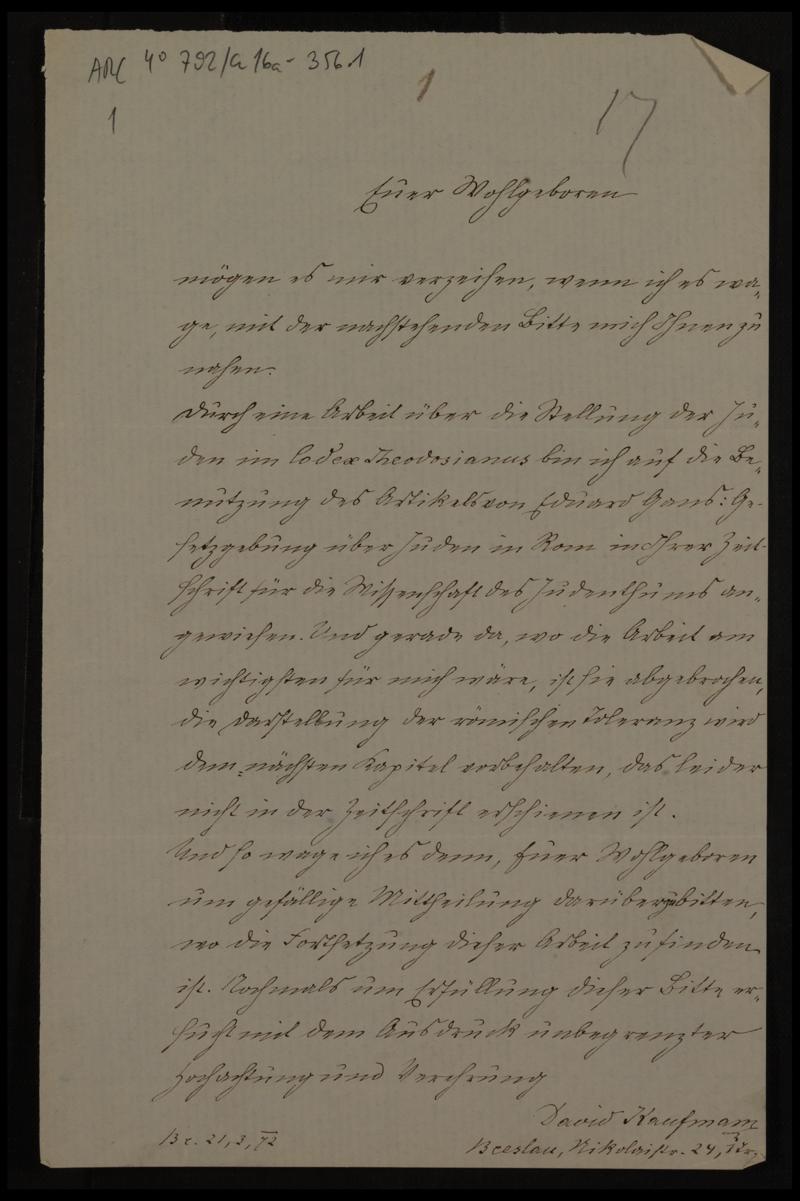 ARC 4° 792/G 16a - 356.1
1
17
1
Euer Wohlgeboren
mögen es mir verzeihen, wenn ich es wa-
ge, mit der nachstehenden Bitte mich Ihnen zu
nahen.
Durch eine Arbeit über die Stellung der Ju-
den im Codex Theodosianus bin ich auf die Be-
nutzung des Artikels von Eduard Gans: Ge-
setzgebung über Juden in Rom in Ihrer Zeit-
schrift für die Wissenschaft des Judenthums an-
gewiesen. Und gerade da, wo die Arbeit am
wichtigsten für mich wäre, ist sie abgebrochen,
die Darstellung der römischen Toleranz wird
dem nächsten Kapitel vorbehalten, das leider
nicht in der Zeitschrift erschienen ist.
Und so wage ich es denn, Euer Wohlgeboren
um gefällige Mittheilung darüber zu bitten,
wo die Fortsetzung dieser Arbeit zu finden
ist. Nochmals um Erfüllung dieser Bitte er-
sucht mit dem Ausdruck unbegrenzter
Hochachtung und Verehrung
David Kaufmann
Br. 21,3,72
Breslau, Nikolaistr. 24,